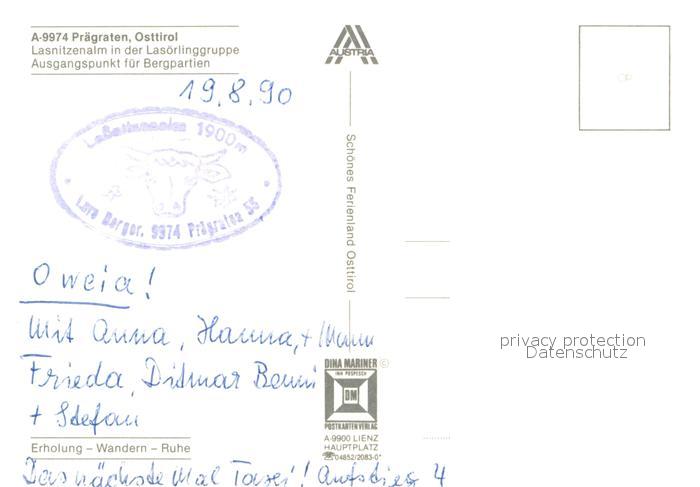 A-9974 Prägraten, Osttirol
Lasnitzenalm in der Lasörlinggruppe
Ausgangspunkt für Bergpartien
AUSTRIA
19.8.90
1900m
Berger, 9974 Prägraten 55
Schönes Ferienland Osttirol
Oweia!
Mit Anna, Hanna, +
Frieda, Ditmar Benni
+ Stefan
privacy protection
Datenschutz
DINA MARINER ©
INH POSPESCH
DM
POSTKARTENVERLAG
A-9900 LIENZ
HAUPTPLATZ
☎04852/2083-0*
Erholung – Wandern – Ruhe
Das nächste Mal Taxi! Aufstieg 4